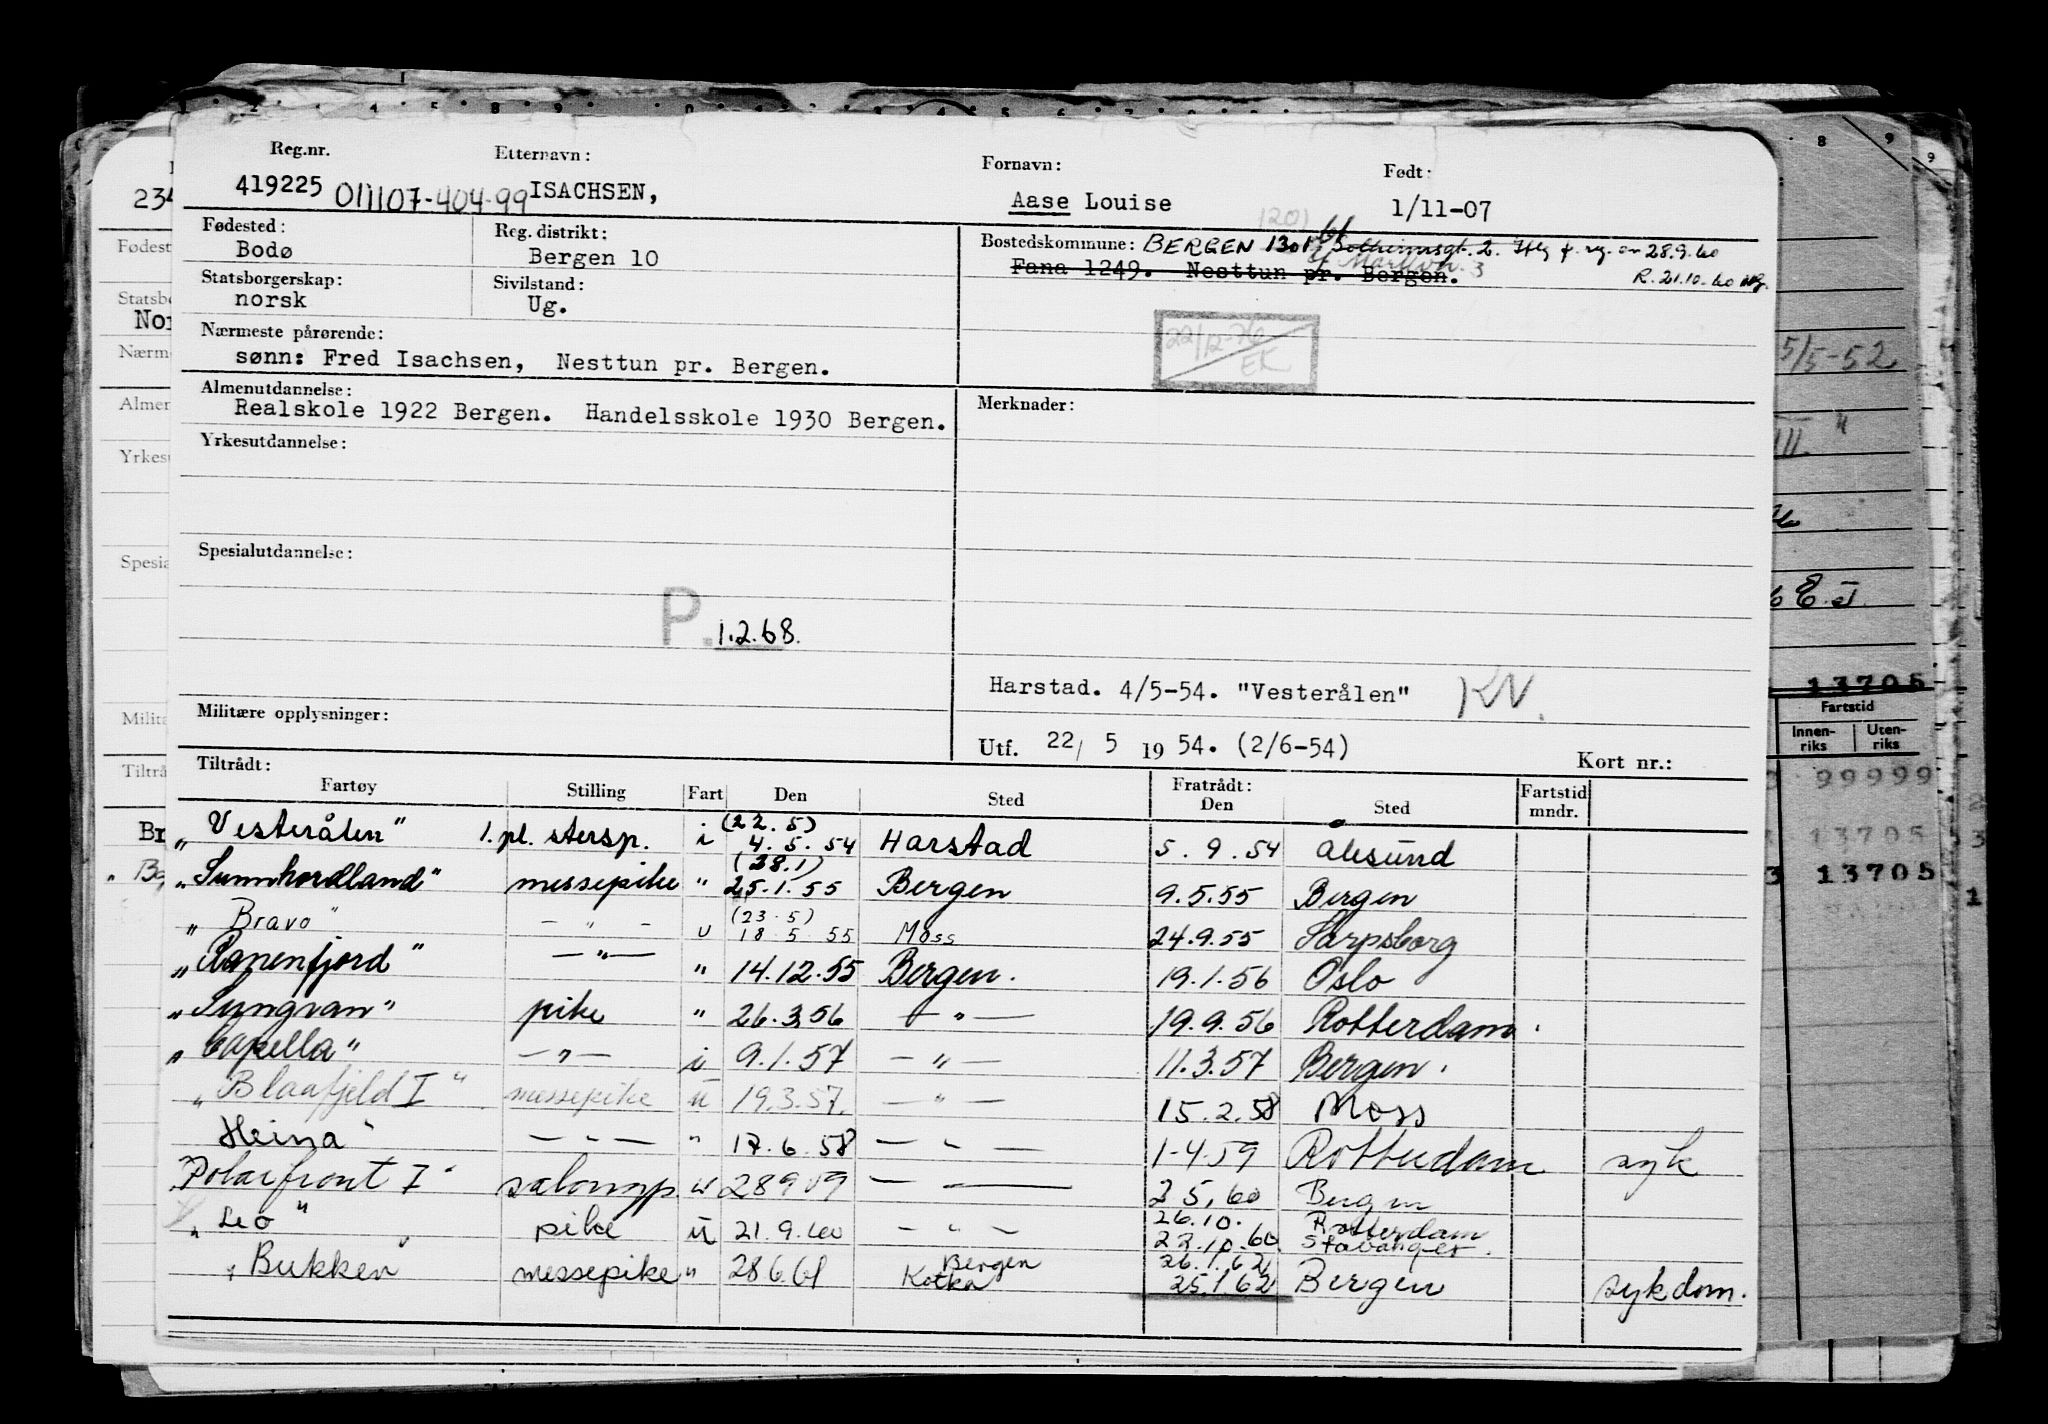 Reg.nr. Etternavn: Fornavn: Født:
419225 011107-404-99 ISACHSEN, Aase Louise 1/11-07
Fødested: Reg. distrikt: Bostedskommune: BERGEN 1301 Solheimsgt. 2. 28.9.60
Bodø Bergen 10 Fana 1249. Nesttun pr. Bergen. R. 21.10.60
Statsborgerskap: Sivilstand:
norsk Ug.
Nærmeste pårørende:
sønn: Fred Isachsen, Nesttun pr. Bergen.
22/12-76
EK
Almenutdannelse: Merknader:
Realskole 1922 Bergen. Handelsskole 1930 Bergen.
Yrkesutdannelse:
Spesialutdannelse:
P. 1.2.68.
Harstad. 4/5-54. "Vesterålen" KV.
Militære opplysninger:
Utf. 22/ 5 19 54. (2/6-54) Kort nr.:
Tiltrådt: Fratrådt:
Fartøy Stilling Fart Den Sted Den Sted Fartstid mndr.
(22.5)
"Vesterålen" 1. pl. stersp. i 4.5.54 Harstad 5.9.54 Ålesund
(28.1)
"Sunnhordland" messepike " 25.1.55 Bergen 9.5.55 Bergen
(23.5)
"Bravo" - " - u 18.5.55 Moss 24.9.55 Sarpsborg
"Ranenfjord" - " - " 14.12.55 Bergen. 19.1.56 Oslo
"Sungvan" pike " 26.3.56 - " - 19.9.56 Rotterdam.
"Capella" - " - i 9.1.57 - " - 11.3.57 Bergen.
"Blaafjeld I" messepike u 19.3.57. - " - 15.2.58 Moss
Heina" - " - " 17.6.58 - " - 1-4.59 Rotterdam syk
"Polarfront I" salongp. u 28959 - " - 2 5.60 Bergen
26.10. Rotterdam
"Leo" pike u 21.9.60 - " - 22.10.60 Stavanger.
Bergen 26.1.62
"Bukken" messepike " 28661 Kotka 25.1.62 Bergen sykdom.
234
Fødest
Statsbo
Nor
Nærm
Almen
Yrkes
Spesia
Milita
Tiltrå
Br
5/5-52
III. "
13705
Fartstid
Innenriks Utenriks
99999
13705
13705